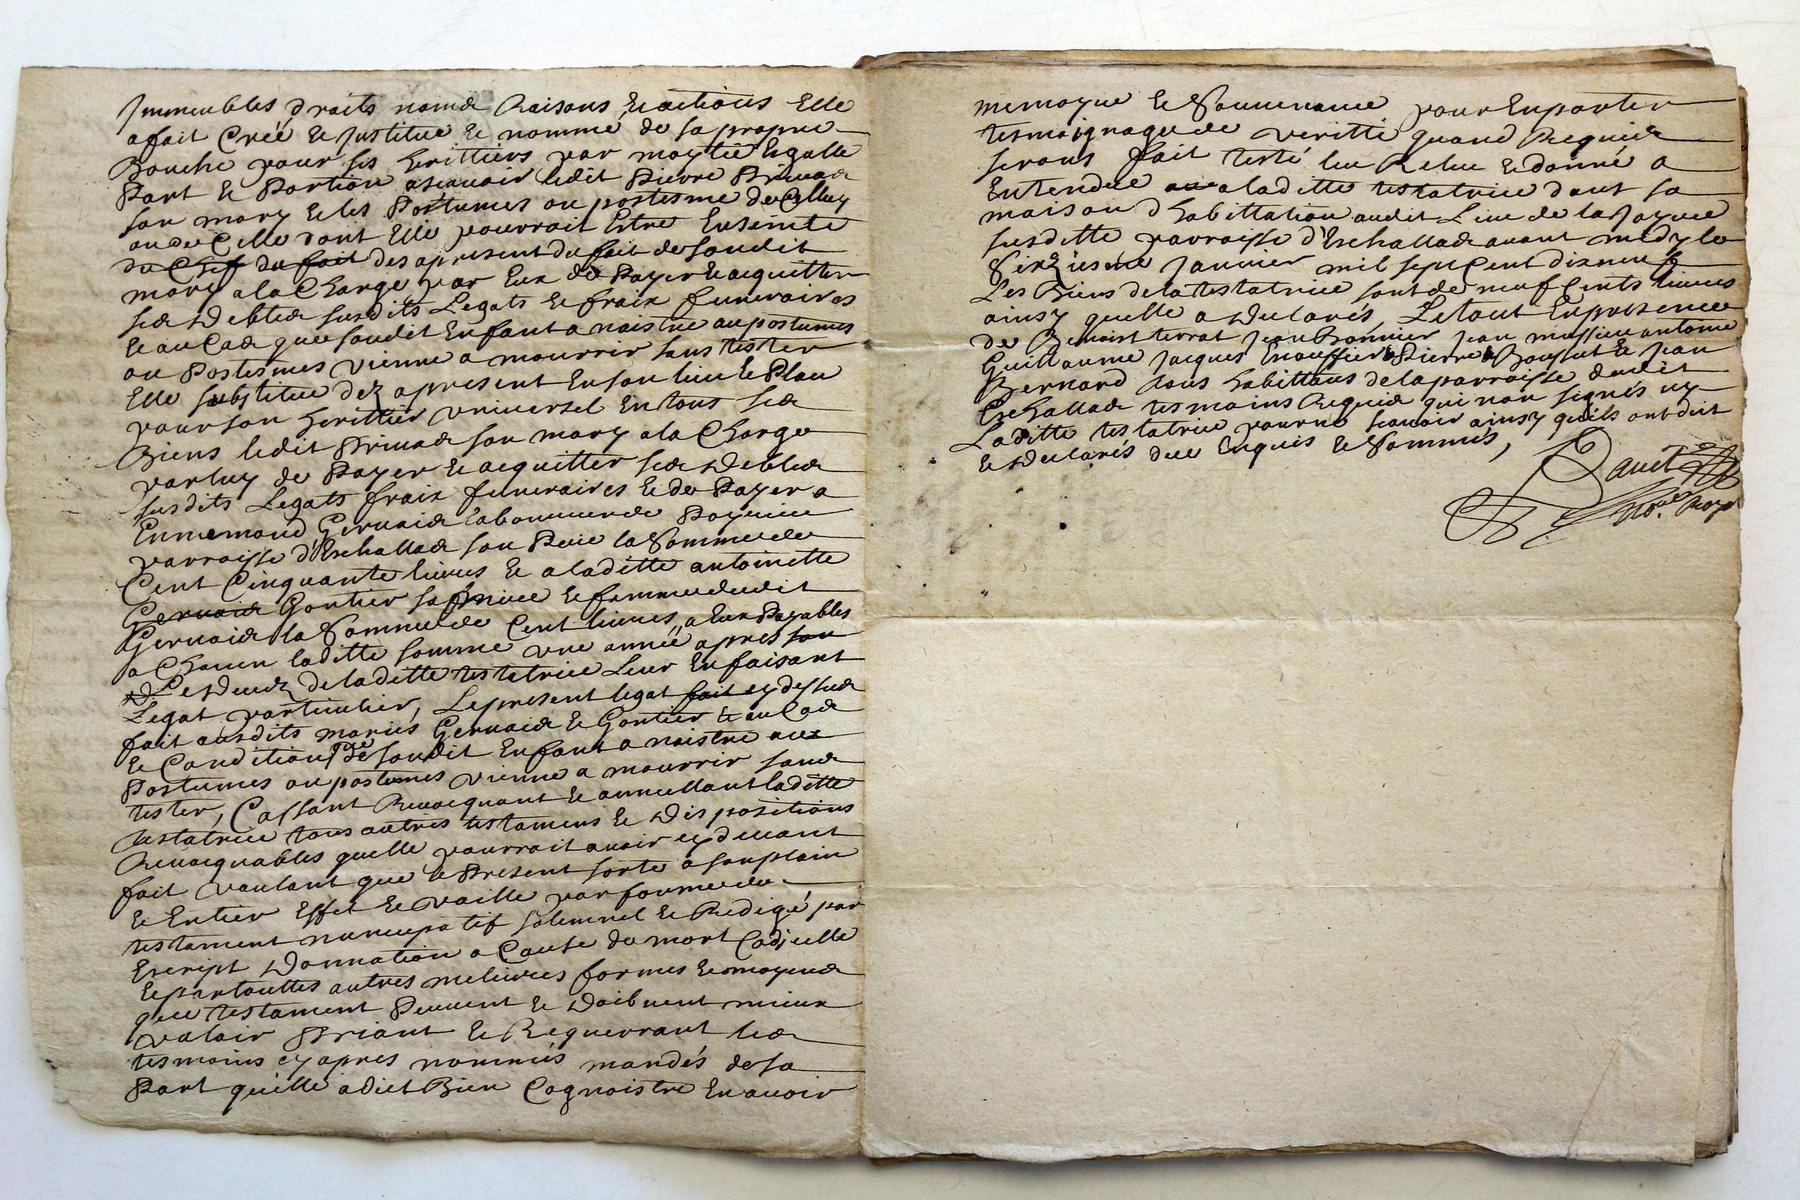 Immeubles droits noms Raisons et actions Elle
a fait Créé et Institue et nommé de sa propre
Bouche pour ses herittiers par moytié Egalle
Part et Portion ascavoir ledit Pierre
son mary et les Postumes ou postesme de Celluy
ou de Celle dont Elle pourroit Estre Enseinte
du Chef du fait des apresent du fait de sondit
mary a la Charge par Eux de Payer et acquitter
ses Debtes susdits Legats et fraix funeraires
et au Cas que sondit Enfant a naistre ou postumes
ou Postesmes vienne a mourrir sans tester
Elle substitue dez apresent En son lieu et Place
pour son herittier universel En tous ses
Biens ledit son mary a la Charge
par luy de Payer et acquitter ses Debtes
susdits Legats fraix funeraires et de Payer a
Ennemond Gervais laboureur de
parroisse d'Eschallas son la Somme de
Cent Cinquante livres et a laditte antoinette
Gervais Gontier sa et femme dudit
Gervais la Somme de Cent livres, a Eux Payables
a Chacun laditte somme une année apres son
Deceds de laditte testatrice Leur En faisant
Legat particulier, Le present legat fait cy dessus
fait ausdits mariés Gervais et Gontier et au Cas
et Condition que sondit Enfant a naistre aux
Postumes ou postumes vienne a mourrir sans
tester, Cassant Revocquant et annullant laditte
testatrice tous autres testamens et Dispositions
Revocquables quelle pourroit avoir cy devant
fait voulant que le Present sorte a son plain
et Entier Effet et vaille par forme de
testament nuncupatif solemnel et Redigé par
Escript Donnation a Cause de mort Codicille
et par touttes autres melieures formes et moyens
que testament Peuvent et Doibvent mieux
valoir Priant et Requerrant les
tesmoins cy apres nommés mandés de sa
Part quelle a dict Bien Cognoistre En avoir
memoyre et Souvenance pour En porter
tesmoignage de veritté quand Requis
serons fait testé leu Releu et donné a
Entendre a laditte testatrice dans sa
maison d'habittation audit Lieu de
susditte parroisse d'Eschallas avant midy le
janvier mil sept Cent dixneuf
Les Biens de la testatrice sont de neuf Cents livres
ainsy quelle a Declarés, Le tout En presence
de Benoist terrat jean Bonnier jean antoine
Guillaume jacques Pierre et jean
Bernard tous habittans de la parroisse dudit
Eschallas tesmoins Requis qui n'on signés ny
Laditte testatrice pour ne scavoir ainsy quils ont dit
et Declarés de ce Enquis et Sommés,
No.re Royal